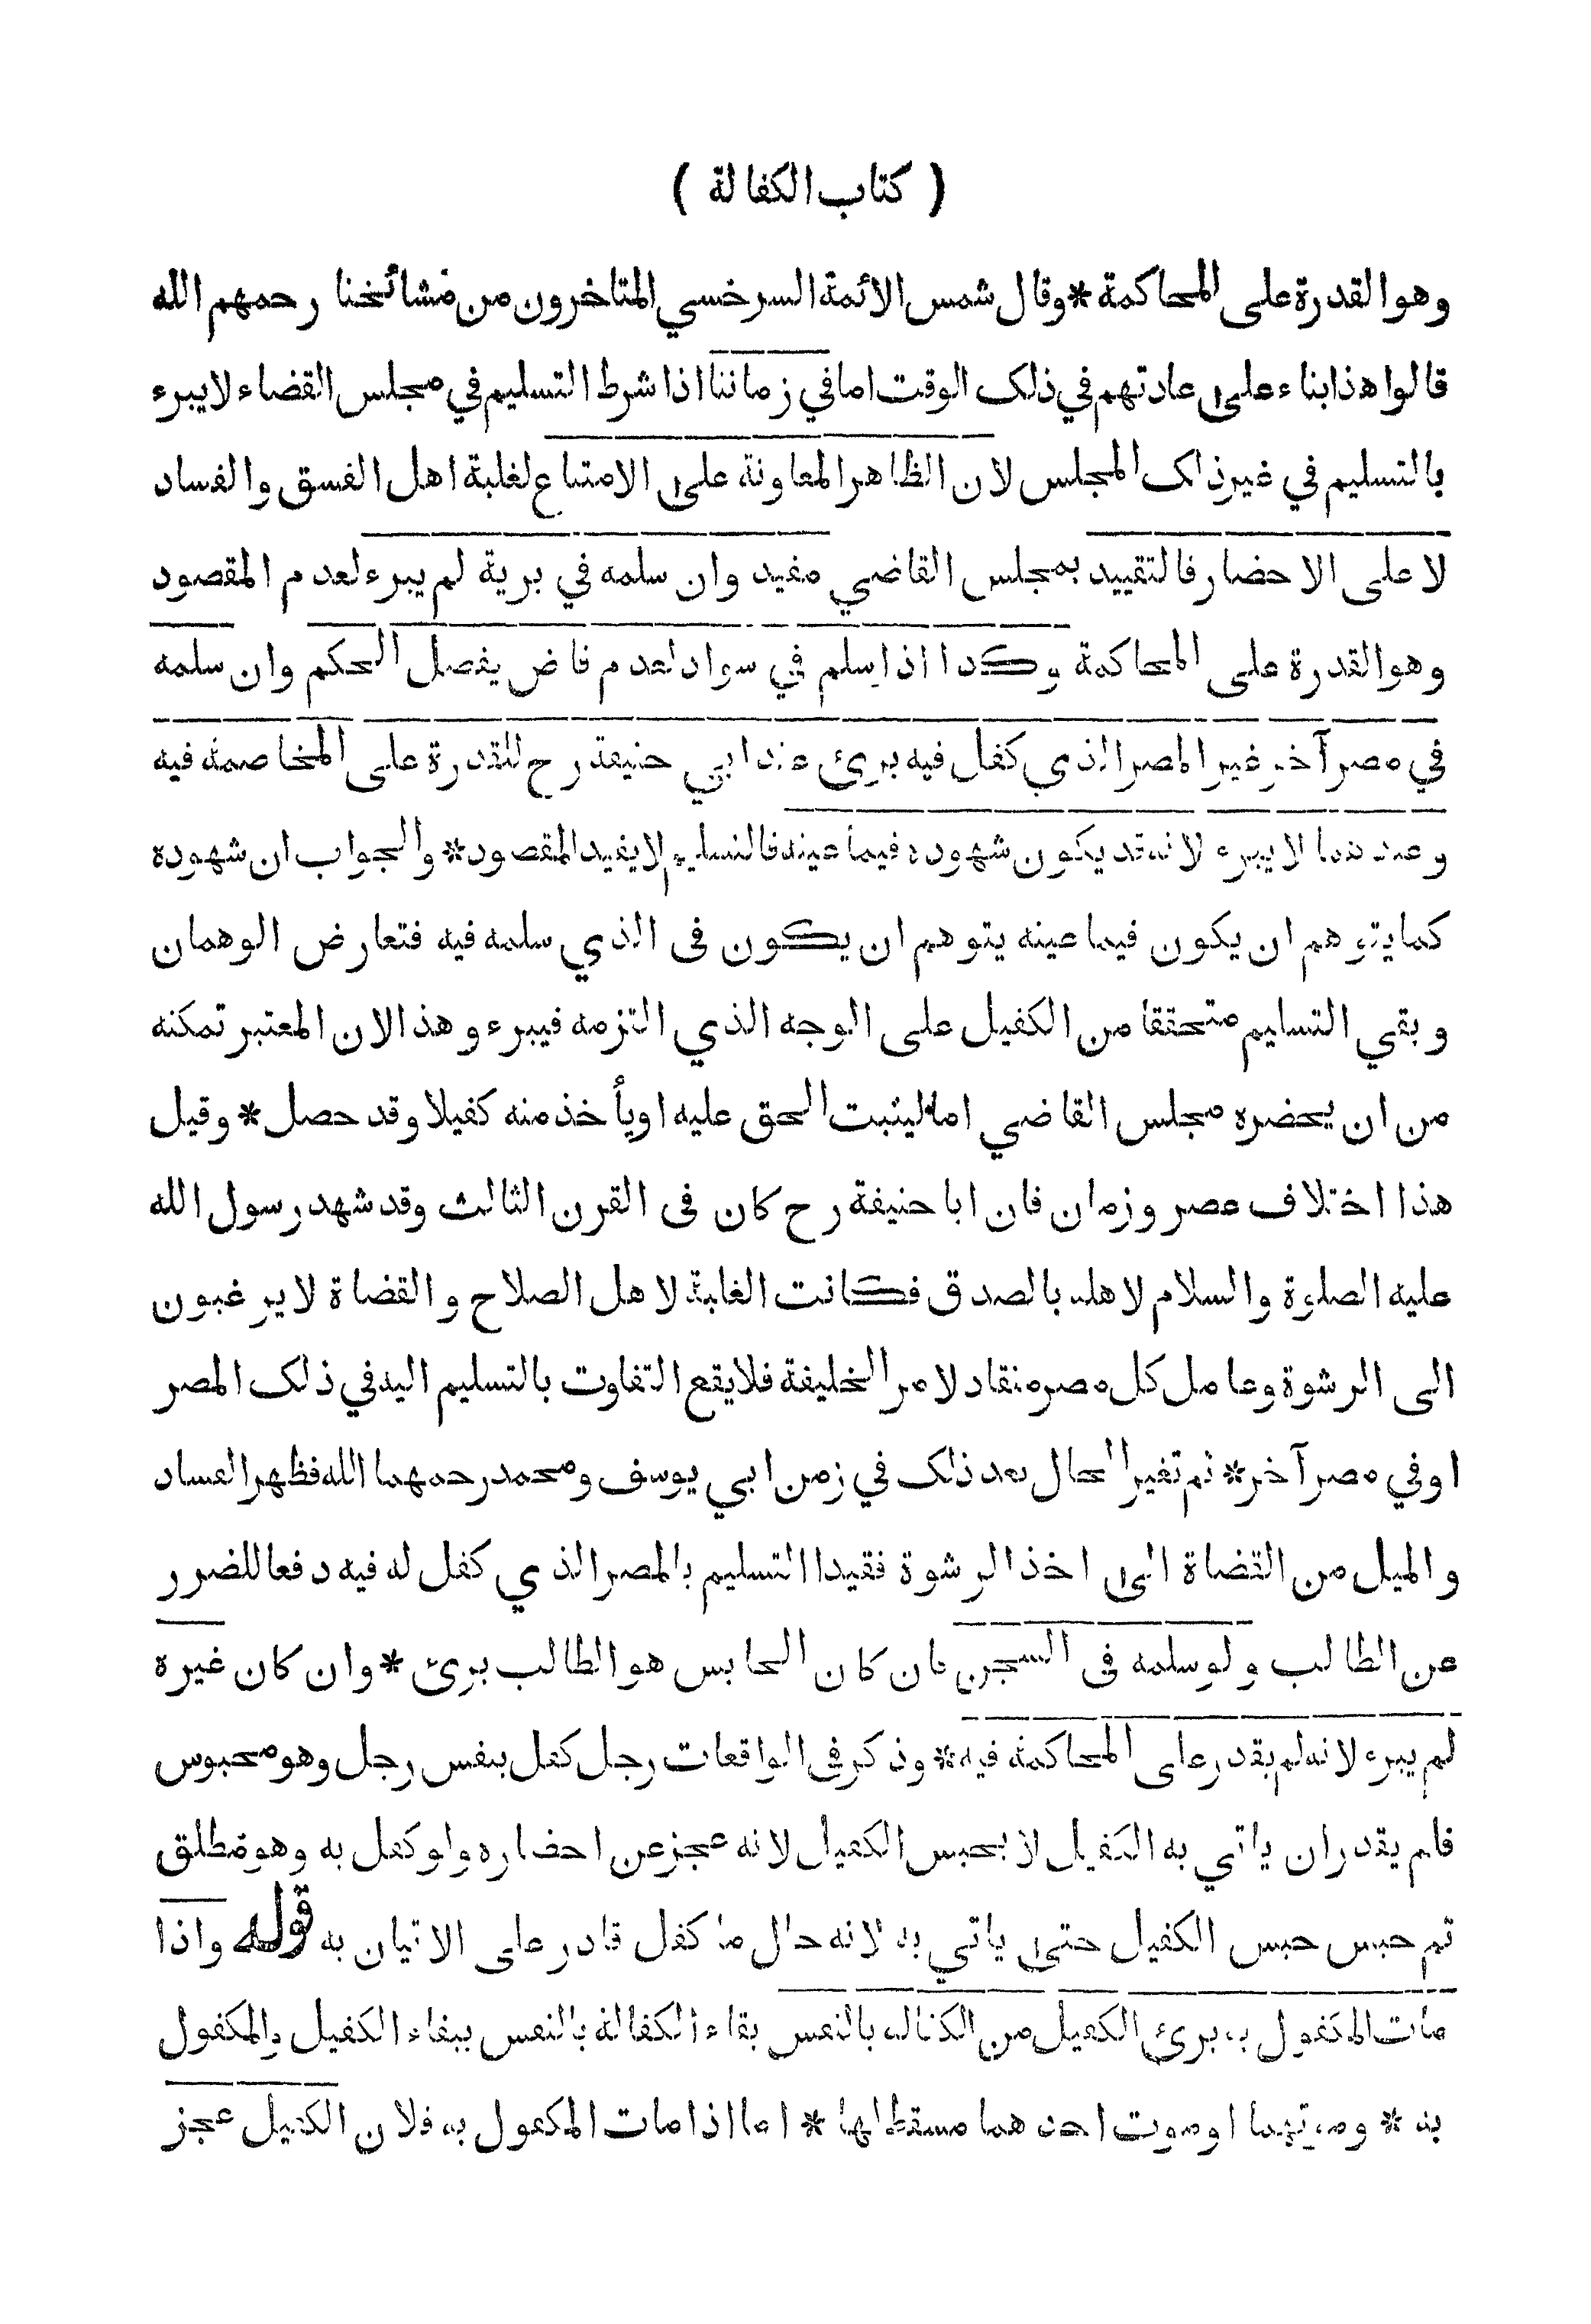 ( كتاب الكفالة )
وهو القدرة على المحاكمة * وقال شمس الائمة السرخسي المتاخرون من مشائخنا رحمهم الله
قالوا هذا بناء على عادتهم في ذلك الوقت اما في زماننا اذا شرط التسليم في مجلس القضاء لا يبرء
بالتسليم في غير ذلك المجلس لان الظاهر المعاونة على الامتناع لغلبة اهل الفسق والفساد
لا على الاحضار فالتقييد بمجلس القاضي مفيد وان سلمه في برية لم يبرء لعدم المقصود
وهو القدرة على المحاكمة وكذا اذا سلم في سواد لعدم قاض يفصل الحكم وان سلمه
في مصر آخر غير المصر الذي كفل فيه برئ عند ابي حنيفة رح للقدرة على المخاصمة فيه
وعندهما لا يبرء لانه قد يكون شهوده فيما عينه فالتسليم لا يفيد المقصود * والجواب ان شهوده
كما يتوهم ان يكون فيما عينه يتوهم ان يكون فى الذي سلمه فيه فتعارض الوهمان
وبقي التسليم متحققا من الكفيل على الوجه الذي التزمه فيبرء وهذا الان المعتبر تمكنه
من ان يحضره مجلس القاضي اما ليثبت الحق عليه او يأخذ منه كفيلا وقد حصل * وقيل
هذا اختلاف عصر وزمان فان ابا حنيفة رح كان فى القرن الثالث وقد شهد رسول الله
عليه الصلوة والسلام لاهله بالصدق فكانت الغلبة لاهل الصلاح والقضاة لا يرغبون
الى الرشوة وعامل كل مصر منقاد لامر الخليفة فلا يقع التفاوت بالتسليم اليه في ذلك المصر
او في مصر آخر * ثم تغير الحال بعد ذلك في زمن ابي يوسف ومحمد رحمهما الله فظهر الفساد
والميل من القضاة الى اخذ الرشوة فقيدا التسليم بالمصر الذي كفل له فيه دفعا للضرر
عن الطالب ولو سلمه فى السجن فان كان الحابس هو الطالب برئ * وان كان غيره
لم يبرء لانه لم يقدر على المحاكمة فيه * وذكر فى الواقعات رجل كفل بنفس رجل وهو محبوس
فلم يقدر ان ياتي به الكفيل لا يحبس الكفيل لانه عجز عن احضاره ولو كفل به وهو مطلق
ثم حبس حبس الكفيل حتى ياتي به لانه حال ما كفل قادر على الاتيان به قوله واذا
مات المكفول به برئ الكفيل من الكفالة بالنفس بقاء الكفالة بالنفس ببقاء الكفيل والمكفول
به * وموتهما او موت احدهما مسقط لها * اما اذا مات المكفول به فلان الكفيل عجز